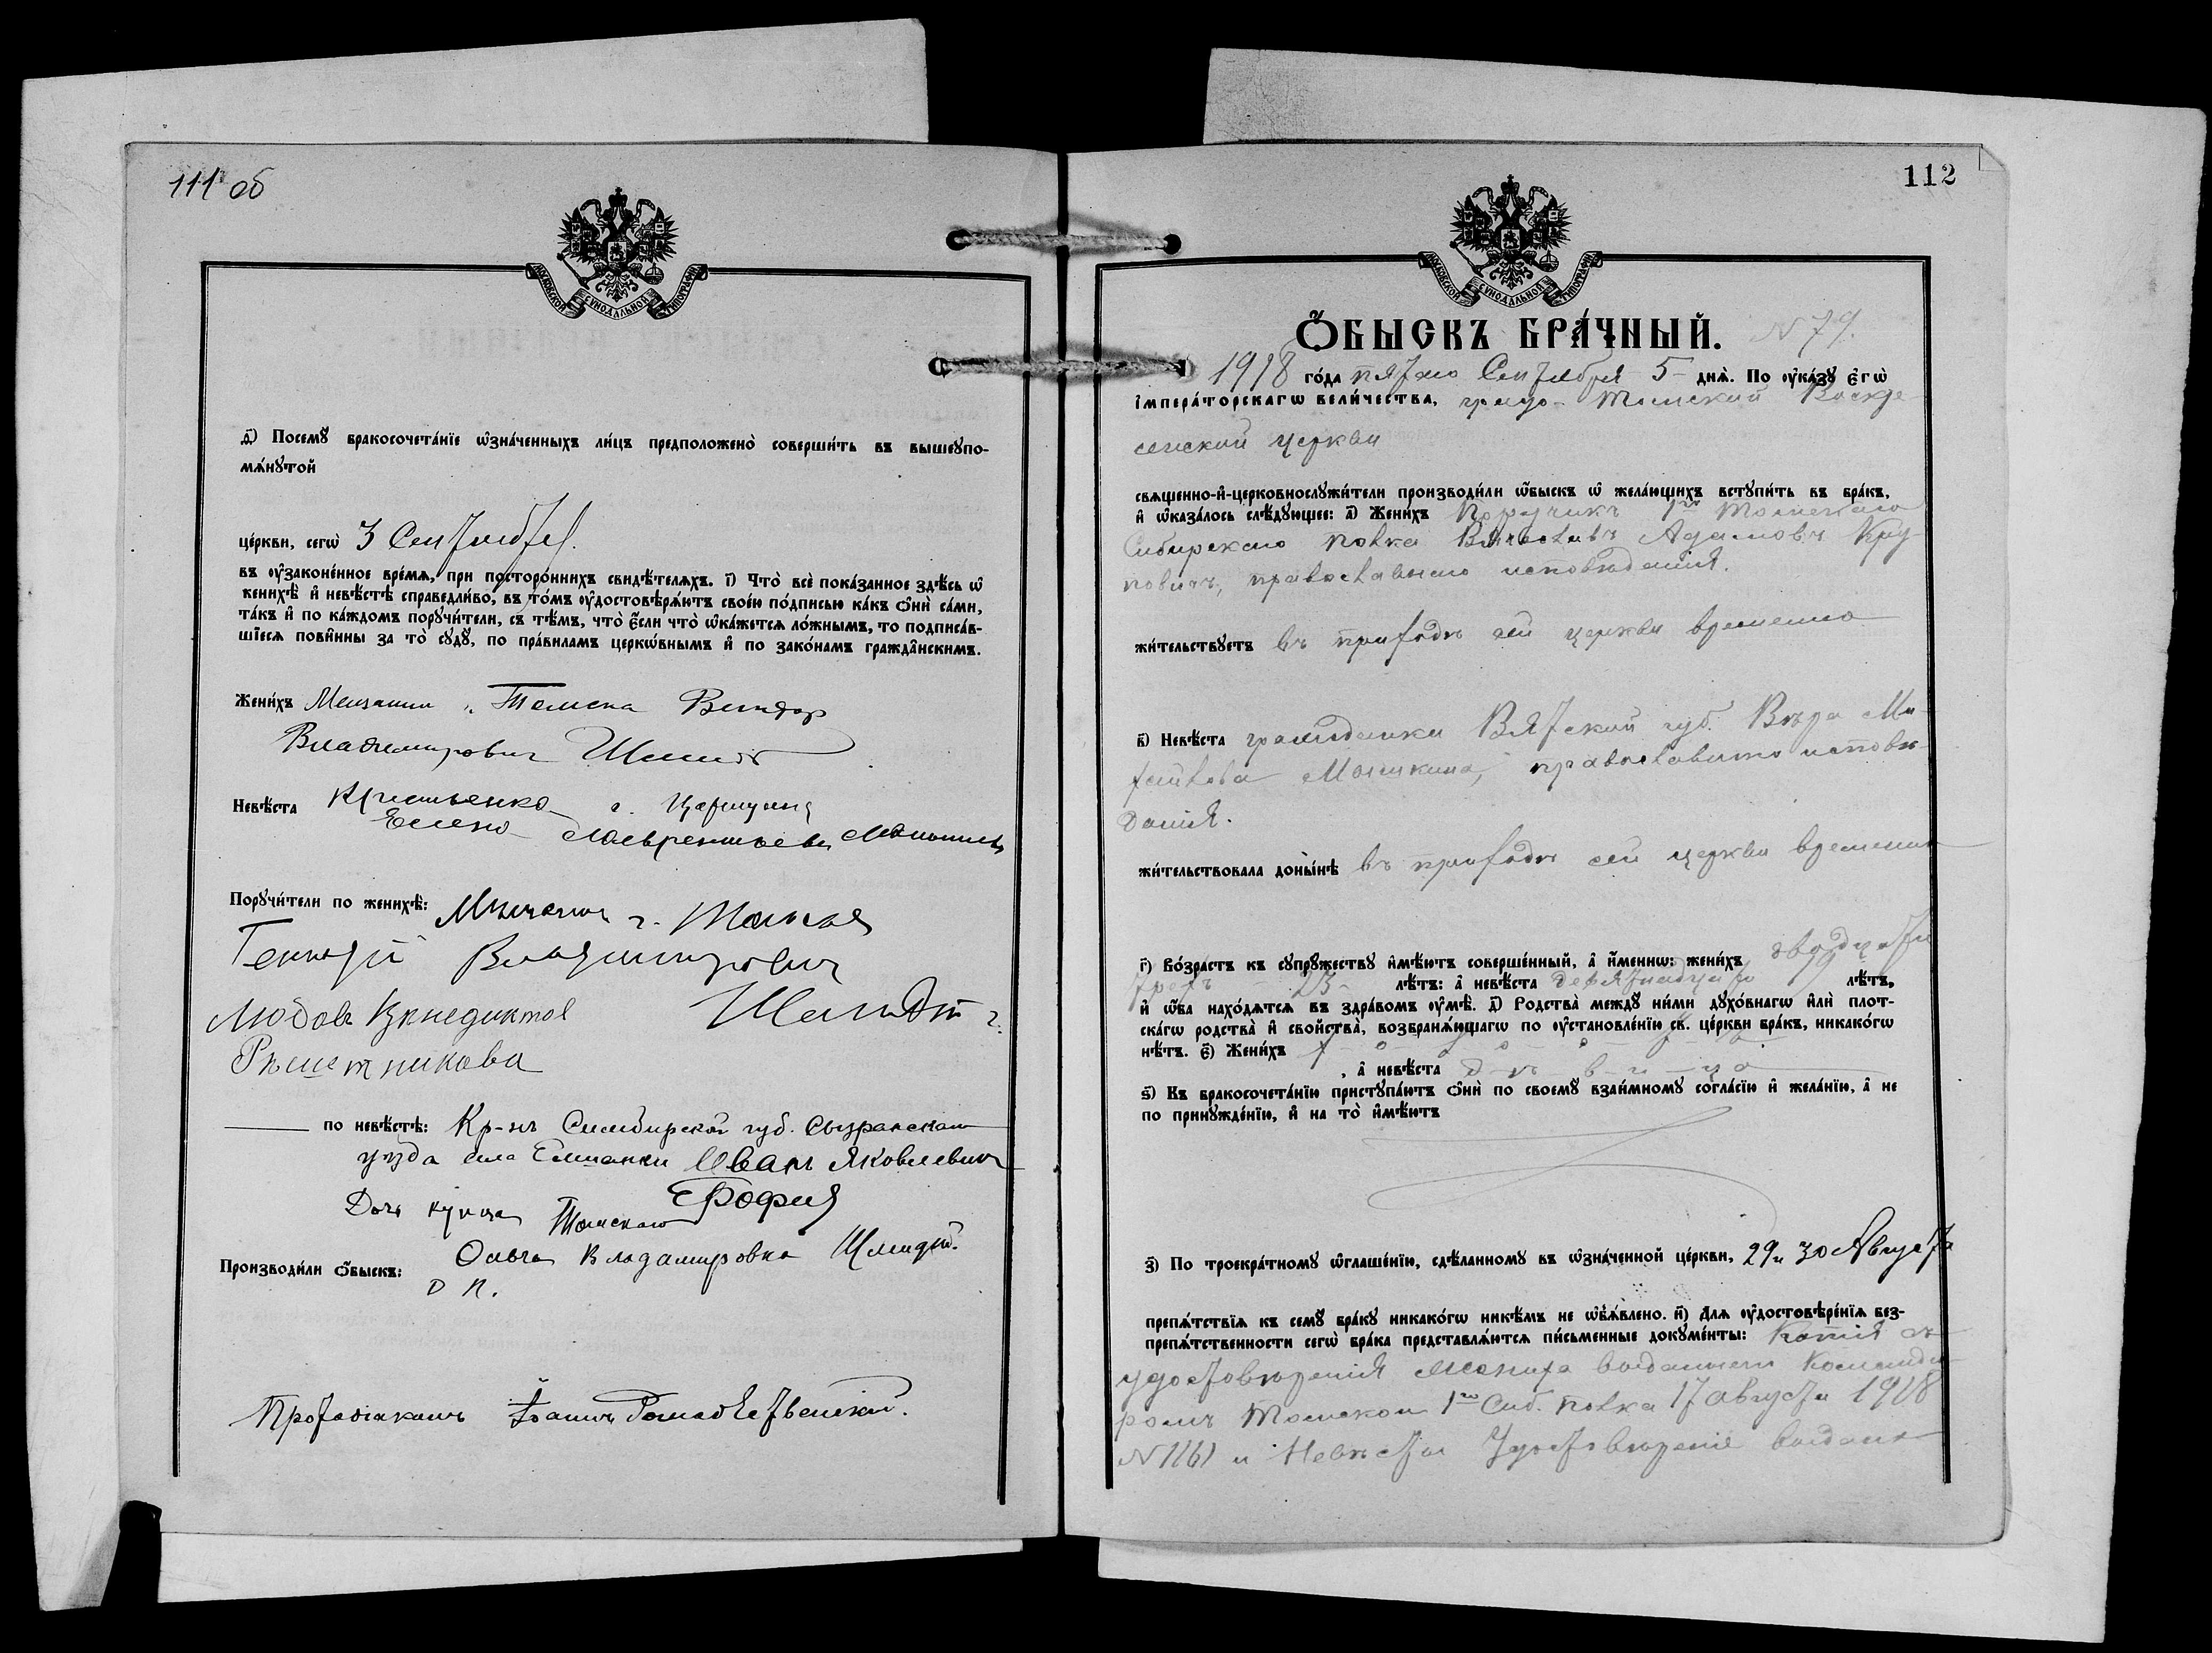 111 об
МОСКОВСКОЙ СѴНОДАЛЬНОЙ ТИПОГРАФІИ
д҃і) Посемꙋ бракосочета́нїе ѡзна́ченныхъ ли́цъ предположено̀ соверши́ть въ вышеꙋпо-
мѧ́нꙋтой
це́ркви, сегѡ̀ 3 Сентября
въ ᲂу҆зако́ненное вре́мѧ, при посторо́ннихъ свидѣ́телѧхъ. і҃) Что̀ всѐ пока́занное здѣ́сь ѡ҆
женихѣ̀ и҆ невѣ́стѣ справедли́во, въ то́мъ ᲂу҆достовѣрѧ́ютъ свое́ю по́дписью ка́къ ѻ҆нѝ са́ми,
та́къ и҆ по ка́ждомъ порꙋчи́тели, съ тѣ́мъ, что̀ є҆́сли что̀ ѡ҆ка́жетсѧ ло́жнымъ, то подписа́в-
шїесѧ пови́нны за то̀ сꙋдꙋ̀, по пра́виламъ церкѡ́внымъ и҆ по зако́намъ гражда̑нскимъ.
Жени́хъ Мещанин г. Томска Виктор
Владимирович Шмидт
Невѣ́ста Крестьянка г. Царицына
Елена Лаврентьева
Порꙋчи́тели по женихѣ̀: Мѣщанин г. Томска
Геннадій Владимирович
Любовь Венедиктов Шмидт
Рѣшетникова
по невѣ́стѣ: Кр-нъ Симбирской губ. Сызранскаго
уѣзда села Елшанки Иванъ Яковлевич
Ерофия
Дочь купца Томскаго
Ольга Владимировна Шмидт.
Производи́ли ѻ҆́быскъ:
D П.
Протодіаконъ Іоаннъ Рождественскій.
112
МОСКОВСКОЙ СѴНОДАЛЬНОЙ ТИПОГРАФІИ
Ѻ҆́БЫСКЪ БРА́ЧНЫЙ. N 79.
1918 го́да пятаго Сентября 5 днѧ̀. По ᲂу҆ка́зꙋ є҆гѡ̀
і҆мпера́торскагѡ вели́чества, градо-Томской Воскре
сенской церкви
свѧщенно-и҆-церковнослꙋжи́тели производи́ли ѻ҆́быскъ ѡ҆ жела́ющихъ встꙋпи́ть въ бра́къ,
и҆ ѡ҆каза́лось слѣ́дꙋющее: а҃) Жени́хъ Поручикъ 1го Томскаго
Сибирскаго полка Вячеславъ Адамовъ Кру-
повичъ, православнаго исповѣданія.
жи́тельствꙋетъ въ приходѣ сей церкви временно
в҃) Невѣ́ста гражданка Вятской губ. Вѣра Ми
хайлова Мышкина, православнаго исповѣ-
данія.
жи́тельствовала доны́нѣ въ приходѣ сей церкви временно
г҃) Во́зрастъ къ сꙋпрꙋ́жествꙋ и҆мѣ́ютъ соверше́нный, а҆ и҆́меннѡ: жени́хъ двадцати
трехъ - 23 - лѣ́тъ: а҆ невѣ́ста девятнадцати 19 лѣ́тъ,
и҆ ѻ҆́ба нахо́дѧтсѧ въ здра́вомъ ᲂу҆мѣ̀. д҃) Родства̀ междꙋ ни́ми дꙋхо́внагѡ и҆лѝ пло́т-
скагѡ родства̀ и҆ сво́йства, возбранѧ́ющагѡ по ᲂу҆становле́нїю св. це́ркви бра́къ, никако́гѡ
нѣ́тъ. є҃) Жени́хъ
, а҆ невѣ́ста д-ѣ-в-и-ца
ѕ҃) Къ бракосочета́нїю пристꙋпа́ютъ ѻ҆нѝ по своемꙋ̀ взаи́мномꙋ согла́сїю и҆ жела́нїю, а҆ не
по принꙋжде́нїю, и҆ на то̀ и҆мѣ́ютъ
з҃) По троекра́тномꙋ ѡ҆глаше́нїю, сдѣ́ланномꙋ въ ѡ҆зна́ченной це́ркви, 29 и 30 Августа
препѧ́тствїѧ къ семꙋ̀ бра́кꙋ никако́гѡ никѣ́мъ не ѡ҆б̾ѧ́влено. и҃) Длѧ ᲂу҆достовѣре́нїѧ без-
препѧ́тственности сегѡ̀ бра́ка представлѧ́ютсѧ пи́сьменные докꙋме́нты: Копія съ
удостовѣренія жениха выданнаго Команди
ромъ Томскаго 1го Сиб. полка 17 августа 1918
N 1161 и Невѣсты Удостовѣреніе выдано